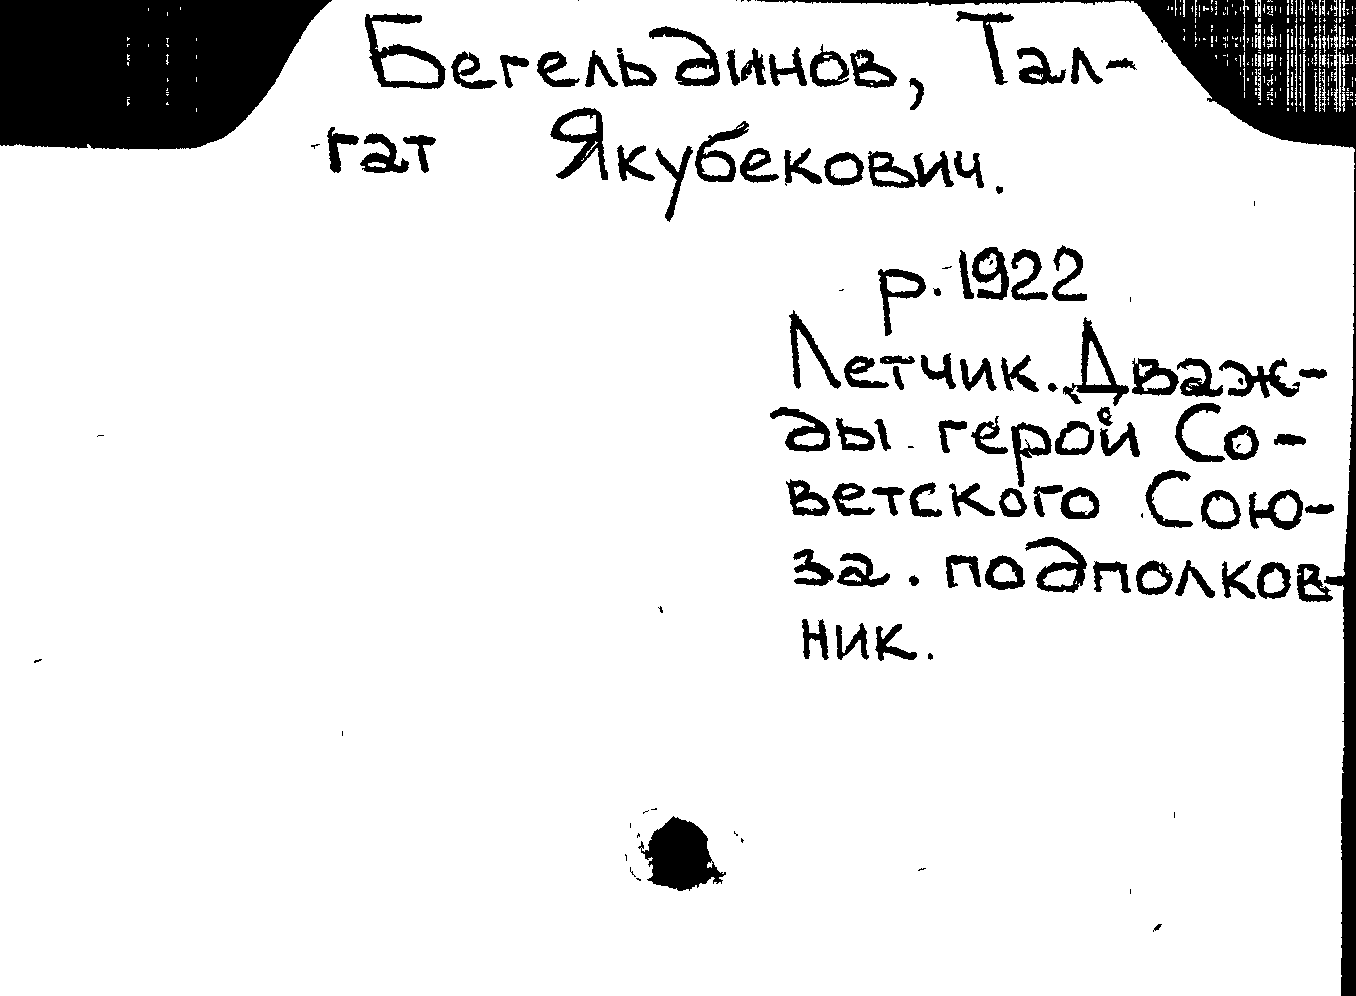 Бегельдинов, Тал-
гат Якубекович.
р. 1922
Летчик. Дваж-
ды герой Со-
ветского Сою-
за. подполков-
ник.